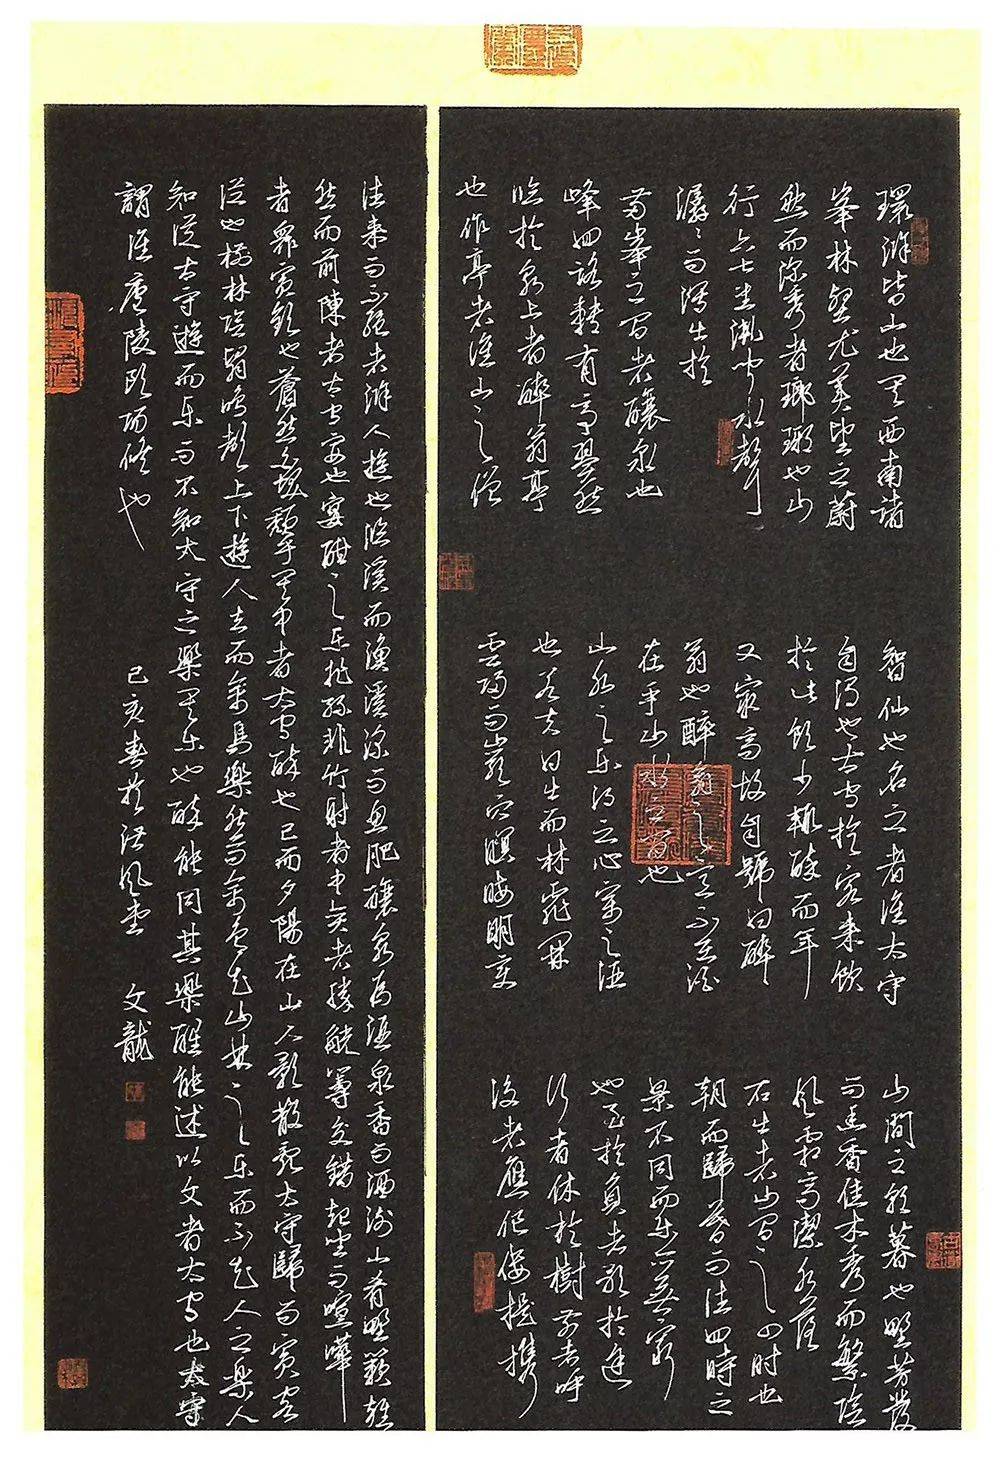 環滁皆山也其西南諸
峯林壑尤美望之蔚
然而深秀者瑯琊也山
行六七里漸聞水聲
潺潺而瀉出於
兩峯之間者釀泉也
峰回路轉有亭翼然
臨於泉上者醉翁亭
也作亭者誰山之僧
智仙也名之者誰太守
自謂也太守於客來飲
於此飲少輒醉而年
又最高故自號曰醉
翁也醉翁之意不在酒
在乎山水之間也
山水之樂得之心寓之酒
也若夫日出而林霏開
雲歸而巖穴暝晦明變
山間之朝暮也野芳發
而幽香佳木秀而繁陰
風霜高潔水落
石出者山間之四時也
朝而歸暮而往四時之
景不同而樂亦無窮
也至於負者歌於途
行者休於樹前者呼
後者應伛僂提攜
往來而不絕者滁人遊也臨溪而漁溪深而魚肥釀泉為酒泉香而酒洌山肴野蔌雜
然而前陳者太守宴也宴酣之樂非絲非竹射者中奕者勝觥籌交錯起坐而喧嘩
者眾賓歡也蒼然白髮頹乎其中者太守醉也已而夕陽在山人影散亂太守歸而賓客
從也樹林陰翳鳴聲上下遊人去而禽鳥樂然而禽鳥知山林之樂而不知人之樂人
知從太守遊而樂而不知太守之樂其樂也醉能同其樂醒能述以文者太守也太守
謂誰廬陵歐陽修也
己亥春於洪風堂 文龍